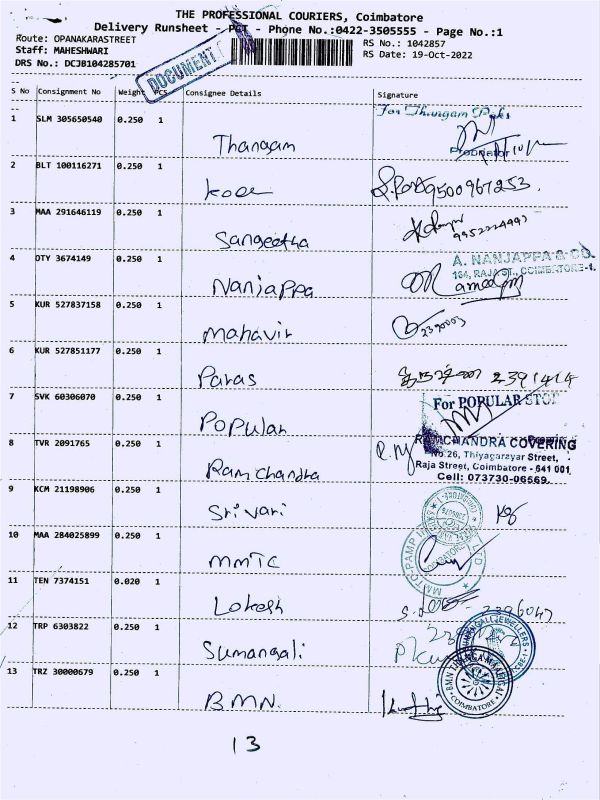 THE PROFESSIONAL COURIERS, Coimbatore
Delivery Runsheet - PCT - Phone No.:0422-3505555 - Page No.:1
Route: OPANAKARASTREET
RS No.: 1042857
Staff: MAHESHWARI
RS Date: 19-Oct-2022
DRS No.: DCJB104285701
DOCUMENT
S No Consignment No Weight PCS Consignee Details Signature
1 SLM 305650540 0.250 1 Thangam For Thangam
2 BLT 100116271 0.250 1 9500967253
3 MAA 291646119 0.250 1 Sangeetha
4 OTY 3674149 0.250 1 Nanjappa A. NANJAPPA & CO.
184, RAJA ST., COIMBATORE-1.
5 KUR 527837158 0.250 1 Mahavir 2390003
6 KUR 527851177 0.250 1 Paras 2391414
7 SVK 60306070 0.250 1 Popular For POPULAR STO
8 TVR 2091765 0.250 1 Ramchandra RAMCHANDRA COVERING
No.26, Thiyagarayar Street,
Raja Street, Coimbatore - 641 001.
Cell: 073730-06569.
9 KCM 21198906 0.250 1 Srivari
10 MAA 284025899 0.250 1 MMTC
11 TEN 7374151 0.020 1 Lokesh 2396047
12 TRP 6303822 0.250 1 Sumangali
13 TRZ 30000679 0.250 1 BMN
COIMBATORE
13